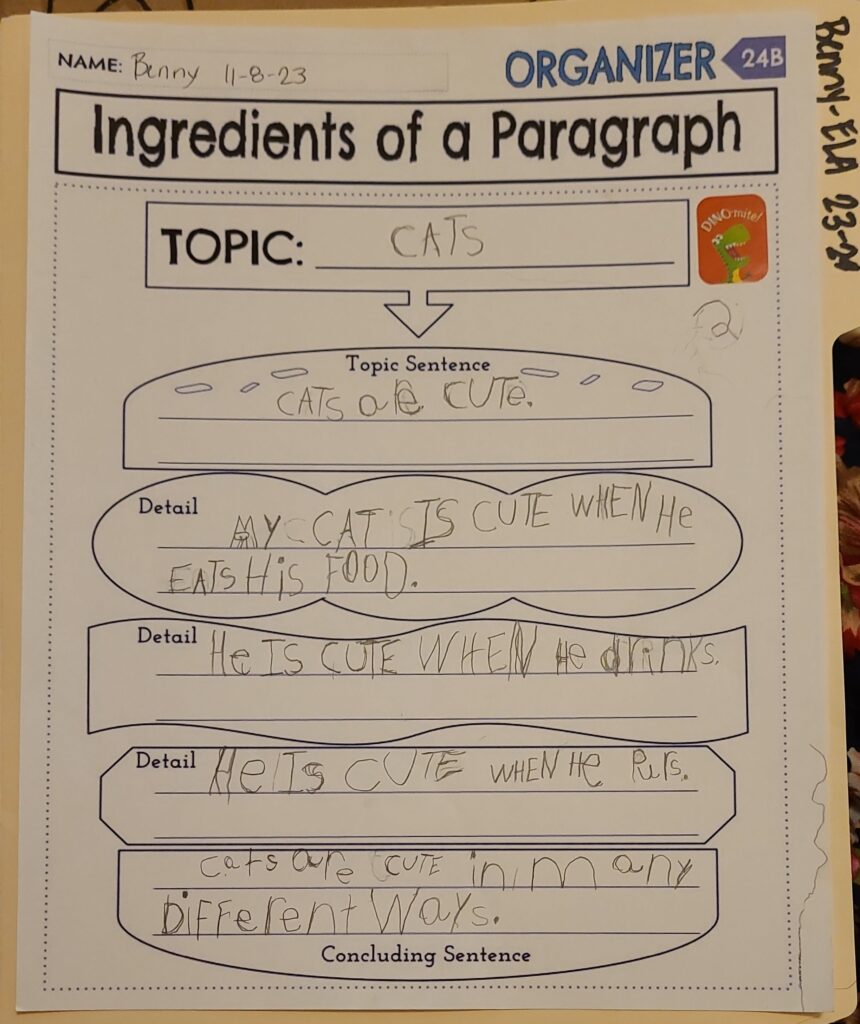 NAME: Benny 11-8-23
ORGANIZER 24B
Ingredients of a Paragraph
TOPIC: CATS
DINO-mite!
2
Topic Sentence
CATS are CUTe.
Detail
MY CAT IS CUTE WHEN He
EATS His FOOD.
Detail
He IS CUTE WHEN He drinks.
Detail
He Is CUTE WHEN He Purs.
cats are CUTE in many
DiFFerent Ways.
Concluding Sentence
Benny - ELA 23-24